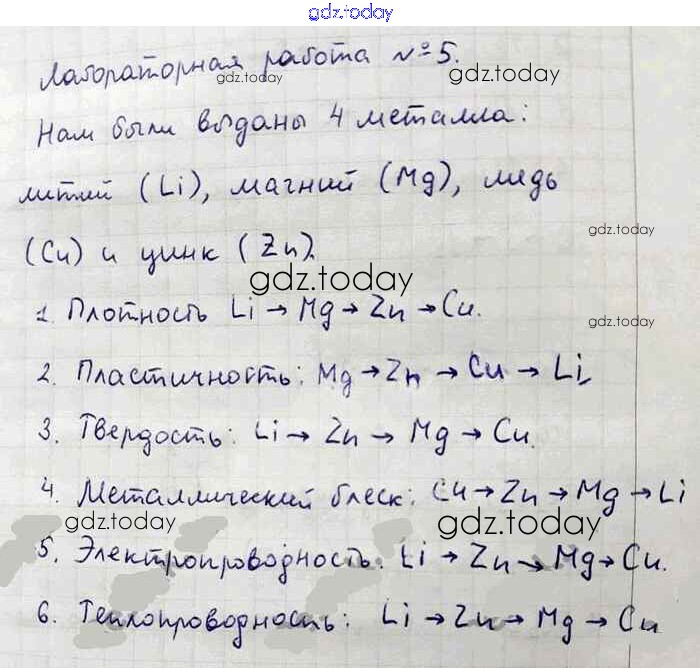 gdz.today
Лабораторная работа №5.
gdz.today gdz.today
Нам были выданы 4 металла:
литий (Li), магний (Mg), медь
(Cu) и цинк (Zn).
gdz.today
gdz.today
1. Плотность Li → Mg → Zn → Cu.
gdz.today
2. Пластичность: Mg → Zn → Cu → Li
3. Твердость: Li → Zn → Mg → Cu.
4. Металлический блеск: Cu → Zn → Mg → Li
gdz.today gdz.today
5. Электропроводность: Li → Zn → Mg → Cu.
6. Теплопроводность: Li → Zn → Mg → Cu